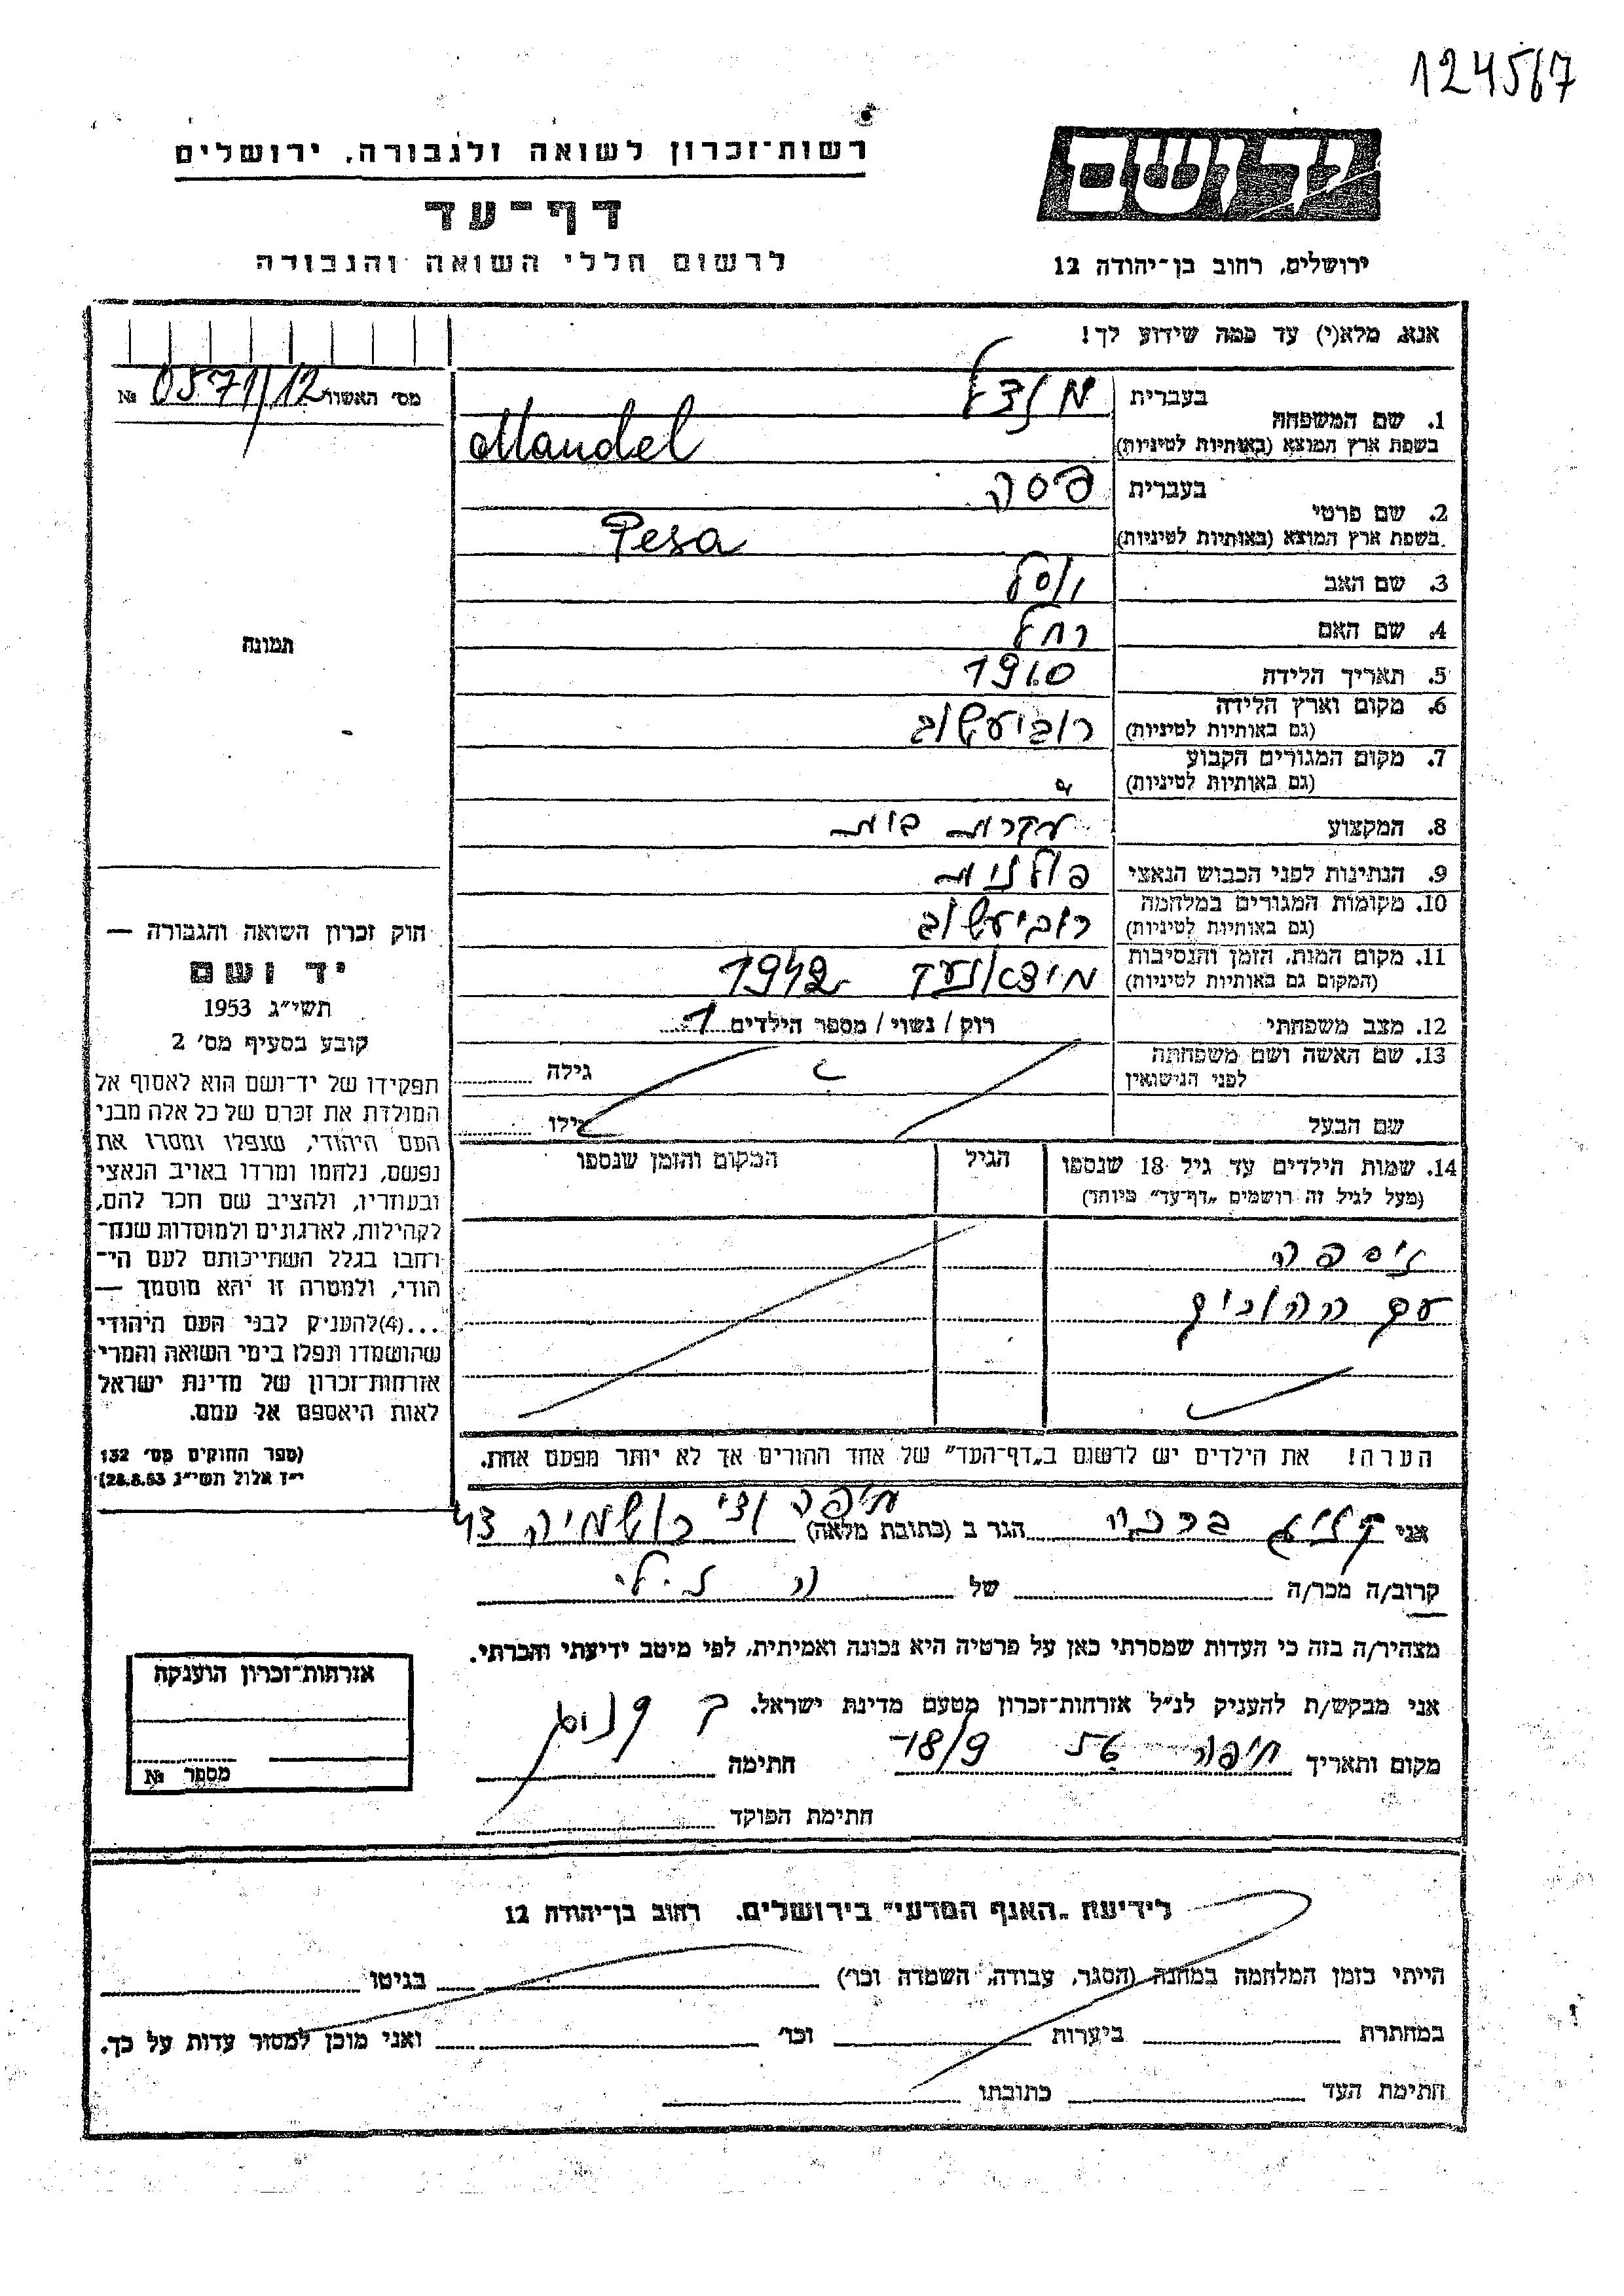 124567
רשות־זכרון לשואה ולגבורה, ירושלים
דף־עד
לרשום חללי השואה והגבורה
יד ושם
ירושלים, רחוב בן־יהודה 12
אנא, מלא(י) עד כמה שידוע לך!
מס׳ האשור 0571/12 №
1. שם המשפחה בעברית מנדל
בשפת ארץ המוצא (באותיות לטיניות) Mandel
2. שם פרטי בעברית פסה
בשפת ארץ המוצא (באותיות לטיניות) Pesa
3. שם האב יוסף
4. שם האם רחל
5. תאריך הלידה 1910
6. מקום וארץ הלידה
(גם באותיות לטיניות) רוביעשוב
7. מקום המגורים הקבוע
(גם באותיות לטיניות)
8. המקצוע עקרת בית
9. הנתינות לפני הכבוש הנאצי פולנית
10. מקומות המגורים במלחמה
(גם באותיות לטיניות) רוביעשוב
11. מקום המות, הזמן והנסיבות
(המקום גם באותיות לטיניות) 1942
12. מצב משפחתי רוק / נשוי / מספר הילדים 1
13. שם האשה ושם משפחתה
לפני הנישואין גילה
שם הבעל גילו
14. שמות הילדים עד גיל 18 שנספו הגיל המקום והזמן שנספו
(מעל לגיל זה רושמים „דף־עד״ מיוחד)
עם ההורים
הערה! את הילדים יש לרשום ב„דף־העד״ של אחד ההורים אך לא יותר מפעם אחת.
תמונה
חוק זכרון השואה והגבורה —
יד ושם
תשי״ג 1953
קובע בסעיף מס׳ 2
תפקידו של יד־ושם הוא לאסוף אל
המולדת את זכרם של כל אלה מבני
העם היהודי, שנפלו ומסרו את
נפשם, נלחמו ומרדו באויב הנאצי
ובעוזריו, ולהציב שם וזכר להם,
לקהילות, לארגונים ולמוסדות שנח־
רחבו בגלל השתייכותם לעם הי־
הודי, ולמטרה זו יהא מוסמך —
...(4)להעניק לבני העם היהודי
שהושמדו ונפלו בימי השואה והמרי
אזרחות־זכרון של מדינת ישראל
לאות היאספם אל עמם.
(ספר החוקים מס׳ 132
י״ד אלול תשי״ג 28.8.53)
אני ברכה הגר ב (כתובת מלאה) חיפה רושמיה 43
קרוב/ה מכר/ה של
מצהיר/ה בזה כי העדות שמסרתי כאן על פרטיה היא נכונה ואמיתית, לפי מיטב ידיעתי והכרתי.
אני מבקש/ת להעניק לנ״ל אזרחות־זכרון מטעם מדינת ישראל.
מקום ותאריך חיפה 18/9 חתימה
חתימת הפוקד
אזרחות־זכרון הוענקה
מספר №
לידיעת „האגף המדעי״ בירושלים. רחוב בן־יהודה 12
הייתי בזמן המלחמה במחנה (הסגר, עבודה, השמדה וכו׳) בגיטו
במחתרת ביערות וכו׳ ואני מוכן למסור עדות על כך.
חתימת העד כתובתו